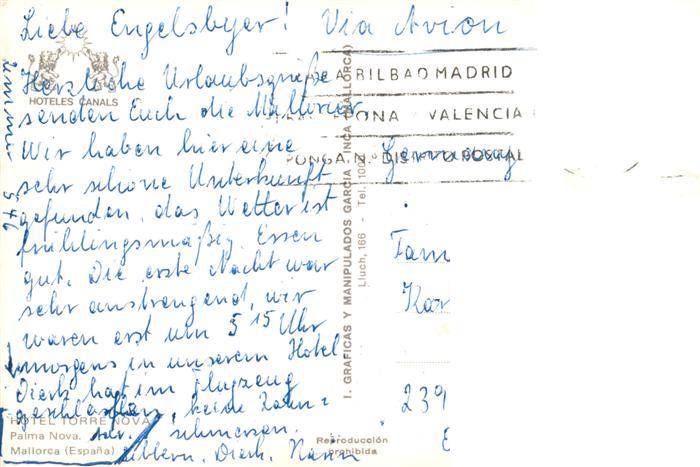 Liebe Engelsbyer! Via Avion
HOTELES CANALS
Herzliche Urlaubsgrüße
senden Euch die
Wir haben hier eine
sehr schöne Unterkunft
gefunden, das Wetter ist
frühlingsmäßig. Essen
gut. Die erste Nacht war
sehr anstrengend, wir
waren erst um 5 15 Uhr
morgens in unserem Hotel
Dierk hat im Flugzeug
geschlafen, keine Zahn=
schmerzen.
Dierk,
Zimmer 546
HOTEL TORRE NOVA
Palma Nova.
Mallorca (España)
I. GRAFICAS Y MANIPULADOS GARCIA - INCA (MALLORCA)
Lluch, 166 - Tel.
Reproducción
prohibida
BILBAO MADRID
ONA VALENCIA
PONGA N.º DISTRITO POSTAL
Germany
Fam
Kar
239